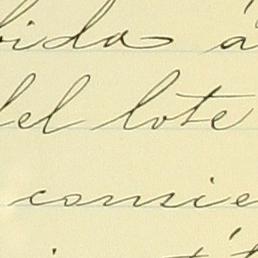 bida a
del lote
consie